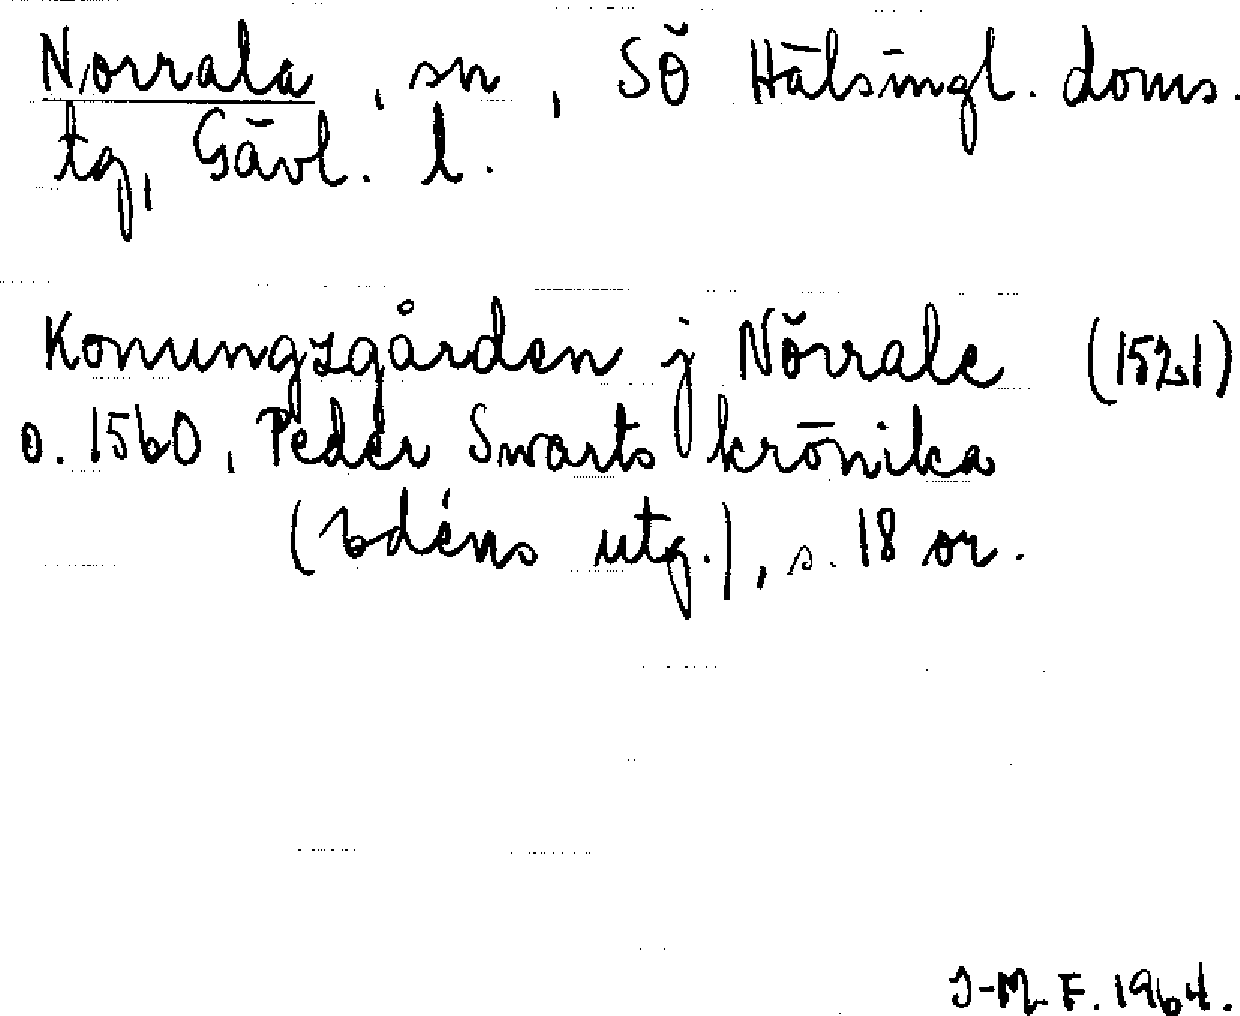 Norrala, sn, SÖ Hälsingl. doms.
tg, Gävl. l.
Konungzgården j Nörrale (1521)
o. 1560, Peder Swarts krönika
(Edéns utg.), s. 18 or.
J-M. F. 1964.